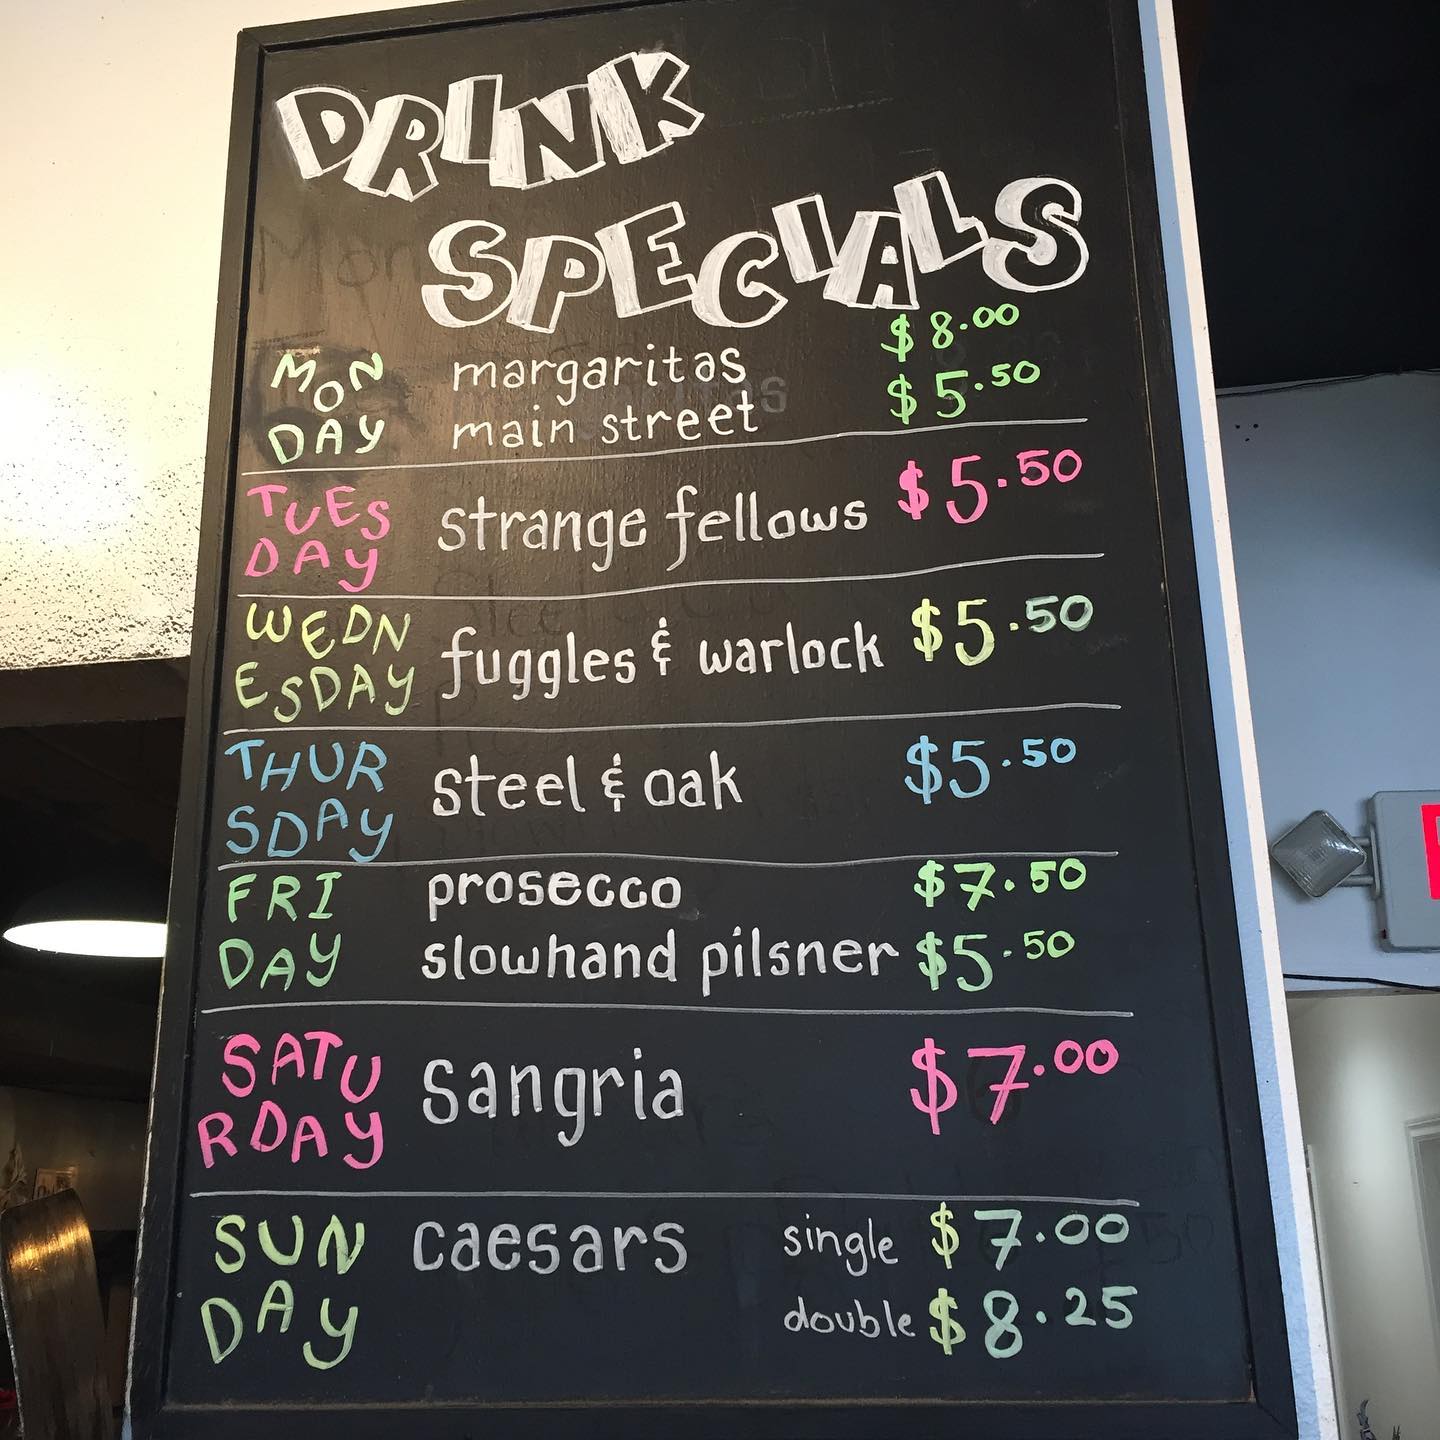 DRINK
SPECIALS
MON
DAY
margaritas $8.00
main street $5.50
TUES
DAY
strange fellows $5.50
WEDN
ESDAY
fuggles & warlock $5.50
THUR
SDAY
steel & oak $5.50
FRI
DAY
prosecco $7.50
slowhand pilsner $5.50
SATU
RDAY
sangria $7.00
SUN
DAY
caesars single $7.00
double $8.25